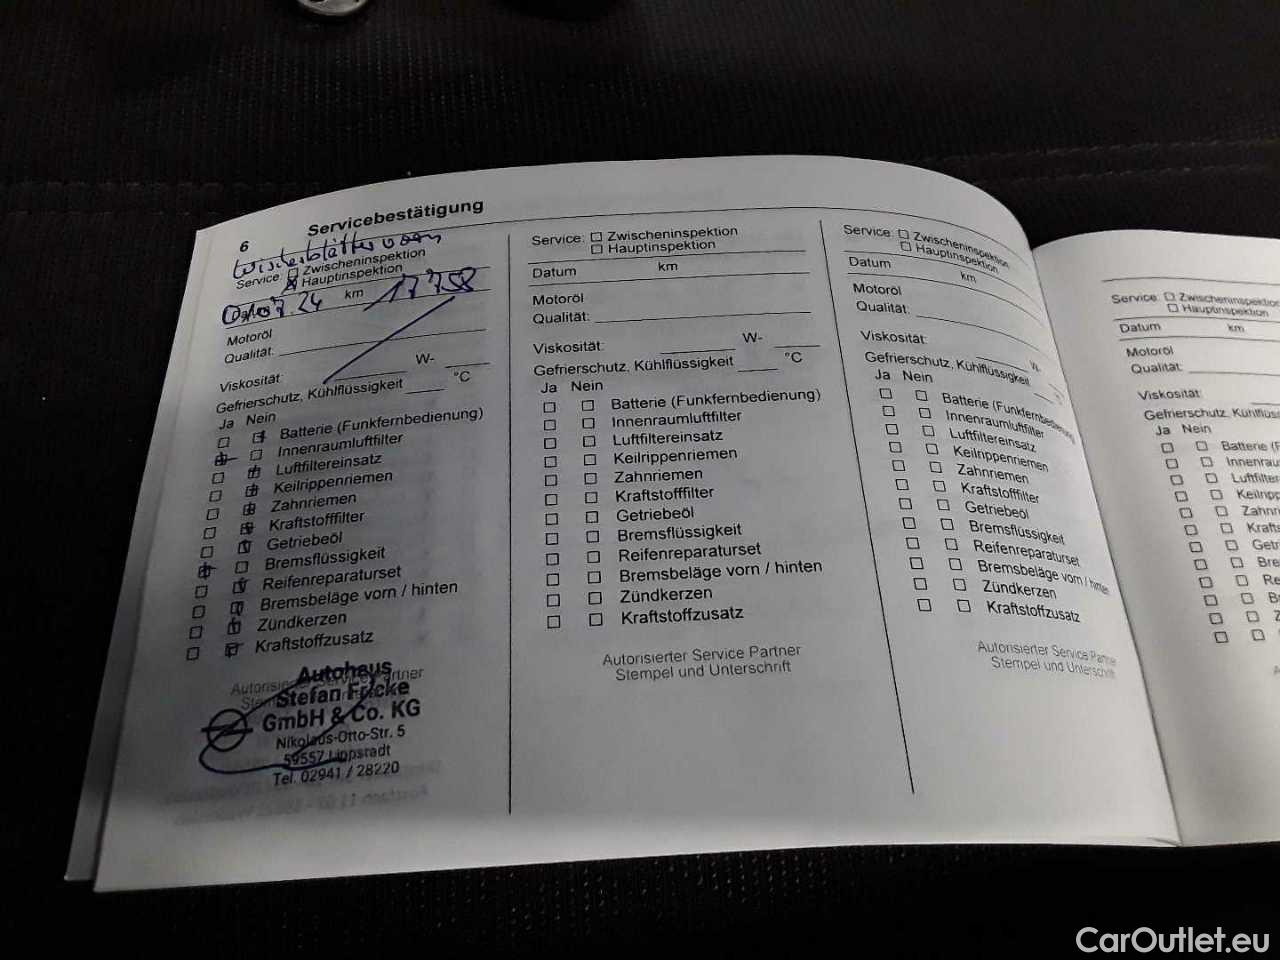 6 Servicebestätigung
Wischerblätter vorn
Service: Zwischeninspektion
Hauptinspektion
km 17758
Motoröl
Qualität:
Viskosität: W-
Gefrierschutz, Kühlflüssigkeit °C
Ja Nein
Batterie (Funkfernbedienung)
Innenraumluftfilter
Luftfiltereinsatz
Keilrippenriemen
Zahnriemen
Kraftstofffilter
Getriebeöl
Bremsflüssigkeit
Reifenreparaturset
Bremsbeläge vorn / hinten
Zündkerzen
Kraftstoffzusatz
Autorisierter Service Partner
Autohaus
Stefan Fricke
GmbH & Co. KG
Nikolaus-Otto-Str. 5
59557 Lippstadt
Tel. 02941 / 28220
Service: Zwischeninspektion
Hauptinspektion
Datum km
Motoröl
Qualität:
Viskosität: W-
Gefrierschutz, Kühlflüssigkeit °C
Ja Nein
Batterie (Funkfernbedienung)
Innenraumluftfilter
Luftfiltereinsatz
Keilrippenriemen
Zahnriemen
Kraftstofffilter
Getriebeöl
Bremsflüssigkeit
Reifenreparaturset
Bremsbeläge vorn / hinten
Zündkerzen
Kraftstoffzusatz
Autorisierter Service Partner
Stempel und Unterschrift
Service: Zwischeninspektion
Hauptinspektion
Datum km
Motoröl
Qualität:
Viskosität: W-
Gefrierschutz, Kühlflüssigkeit °C
Ja Nein
Batterie (Funkfernbedienung)
Innenraumluftfilter
Luftfiltereinsatz
Keilrippenriemen
Zahnriemen
Kraftstofffilter
Getriebeöl
Bremsflüssigkeit
Reifenreparaturset
Bremsbeläge vorn / hinten
Zündkerzen
Kraftstoffzusatz
Autorisierter Service Partner
Stempel und Unterschrift
Service: Zwischeninspektion
Hauptinspektion
Datum km
Motoröl
Qualität:
Viskosität:
Gefrierschutz, Kühlflüss
Ja Nein
Batterie (F
Innenrau
Luftfilter
Keilripp
Zahnri
Krafts
Getri
Bre
Re
B
Z
CarOutlet.eu